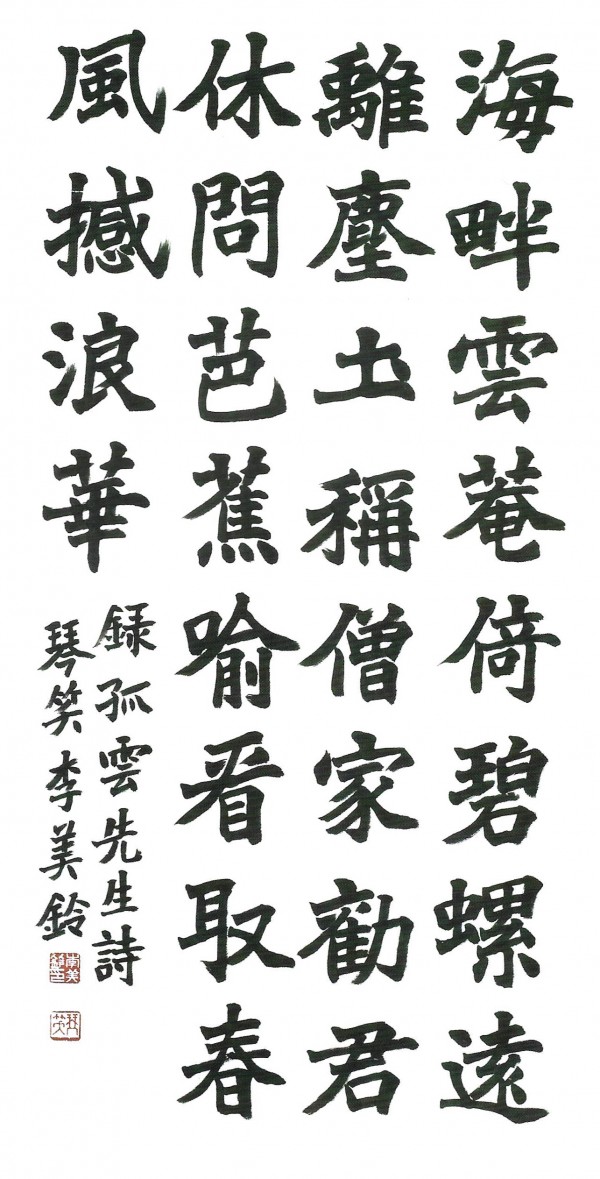 海畔雲菴倚碧螺遠
離塵土稱僧家勸君
休問芭蕉喻看取春
風撼浪華
録孤雲先生詩
琴笑李美鈴